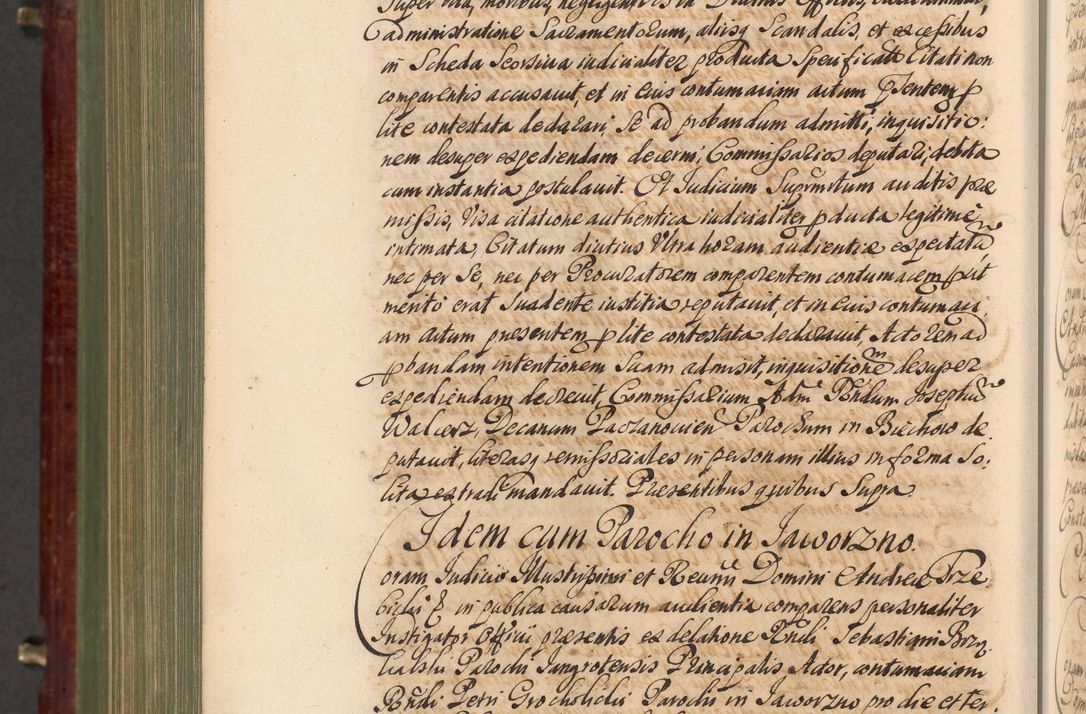 Super vita, moribus, negligentiis in Divinis Officiis,
administratione Sacramentorum, aliisq Scandalis, et excessibus
in Scheda Seorsiva iudicialiter producta Specificatis Citati non
comparentis accusavit, et in eius contumaciam actum p̱sentem p
lite contestata declarari, Se ad probandum admitti, inquisitio:
nem desuper expediendam decerni, Commissarios deputari, debita
cum instantia postulavit. Et Iudicium Supremitum auditis præ
missis, Visa citatione authentica iudicialiter pducta legitime
intimata, Citatum diutius Ultra horam audientiæ expectatū
nec per Se, nec per Procuratorem comparentem contumacem put
merito erat Suadente iustitia reputavit, et in eius contumaci,
am actum presentem p lite contestata declaravit, Actorem ad
pbandam intentionem Suam admisit, inquisitionem desuper
expediendam decrevit, Commissarium Adm Rndum Josephū
Walcerz, Decanum Paczanovien Parochum in Biechow de
putavit, literasq remissoriales in personam illius in forma So:
lita extradi mandavit. Præsentibus quibus Supra.
Idem cum Parocho in Jaworzno.
Coram Iudicio Illustrissimi et Reverēn Domini Andreæ Trze
bicki &c in publica causarum audientia comparens personaliter
Instigator Officii præsentis ex delatione Rndi Sebastiani
Parochi Principalis Actor, contumaciam
Rndi Petri Grocholicki Parochi in Jaworzno pro die et ter.